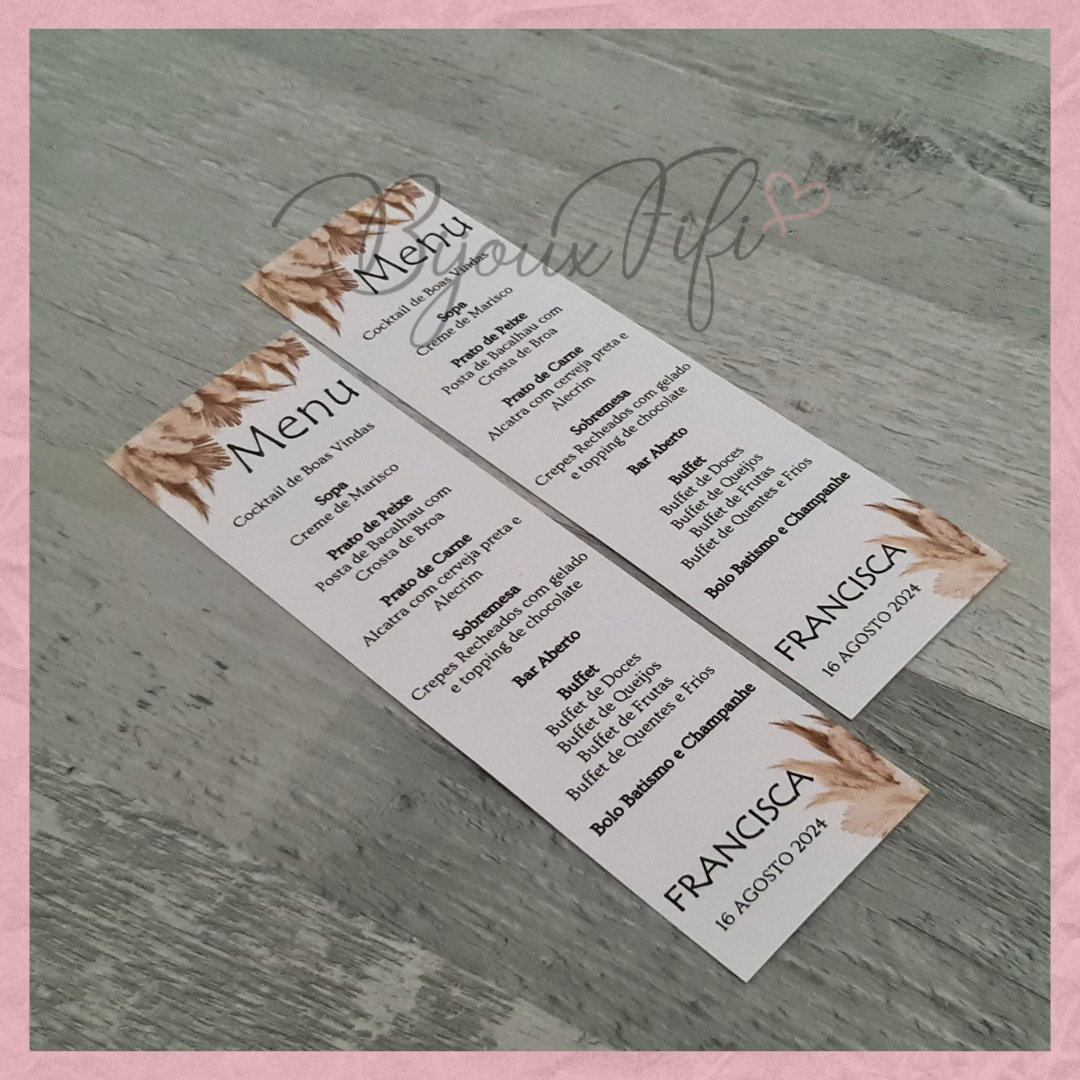 Bijoux Fifi
Menu
Cocktail de Boas Vindas
Sopa
Creme de Marisco
Prato de Peixe
Posta de Bacalhau com
Crosta de Broa
Prato de Carne
Alcatra com cerveja preta e
Alecrim
Sobremesa
Crepes Recheados com gelado
e topping de chocolate
Bar Aberto
Buffet
Buffet de Doces
Buffet de Queijos
Buffet de Frutas
Buffet de Quentes e Frios
Bolo Batismo e Champanhe
FRANCISCA
16 AGOSTO 2024
Menu
Cocktail de Boas Vindas
Sopa
Creme de Marisco
Prato de Peixe
Posta de Bacalhau com
Crosta de Broa
Prato de Carne
Alcatra com cerveja preta e
Alecrim
Sobremesa
Crepes Recheados com gelado
e topping de chocolate
Bar Aberto
Buffet
Buffet de Doces
Buffet de Queijos
Buffet de Frutas
Buffet de Quentes e Frios
Bolo Batismo e Champanhe
FRANCISCA
16 AGOSTO 2024